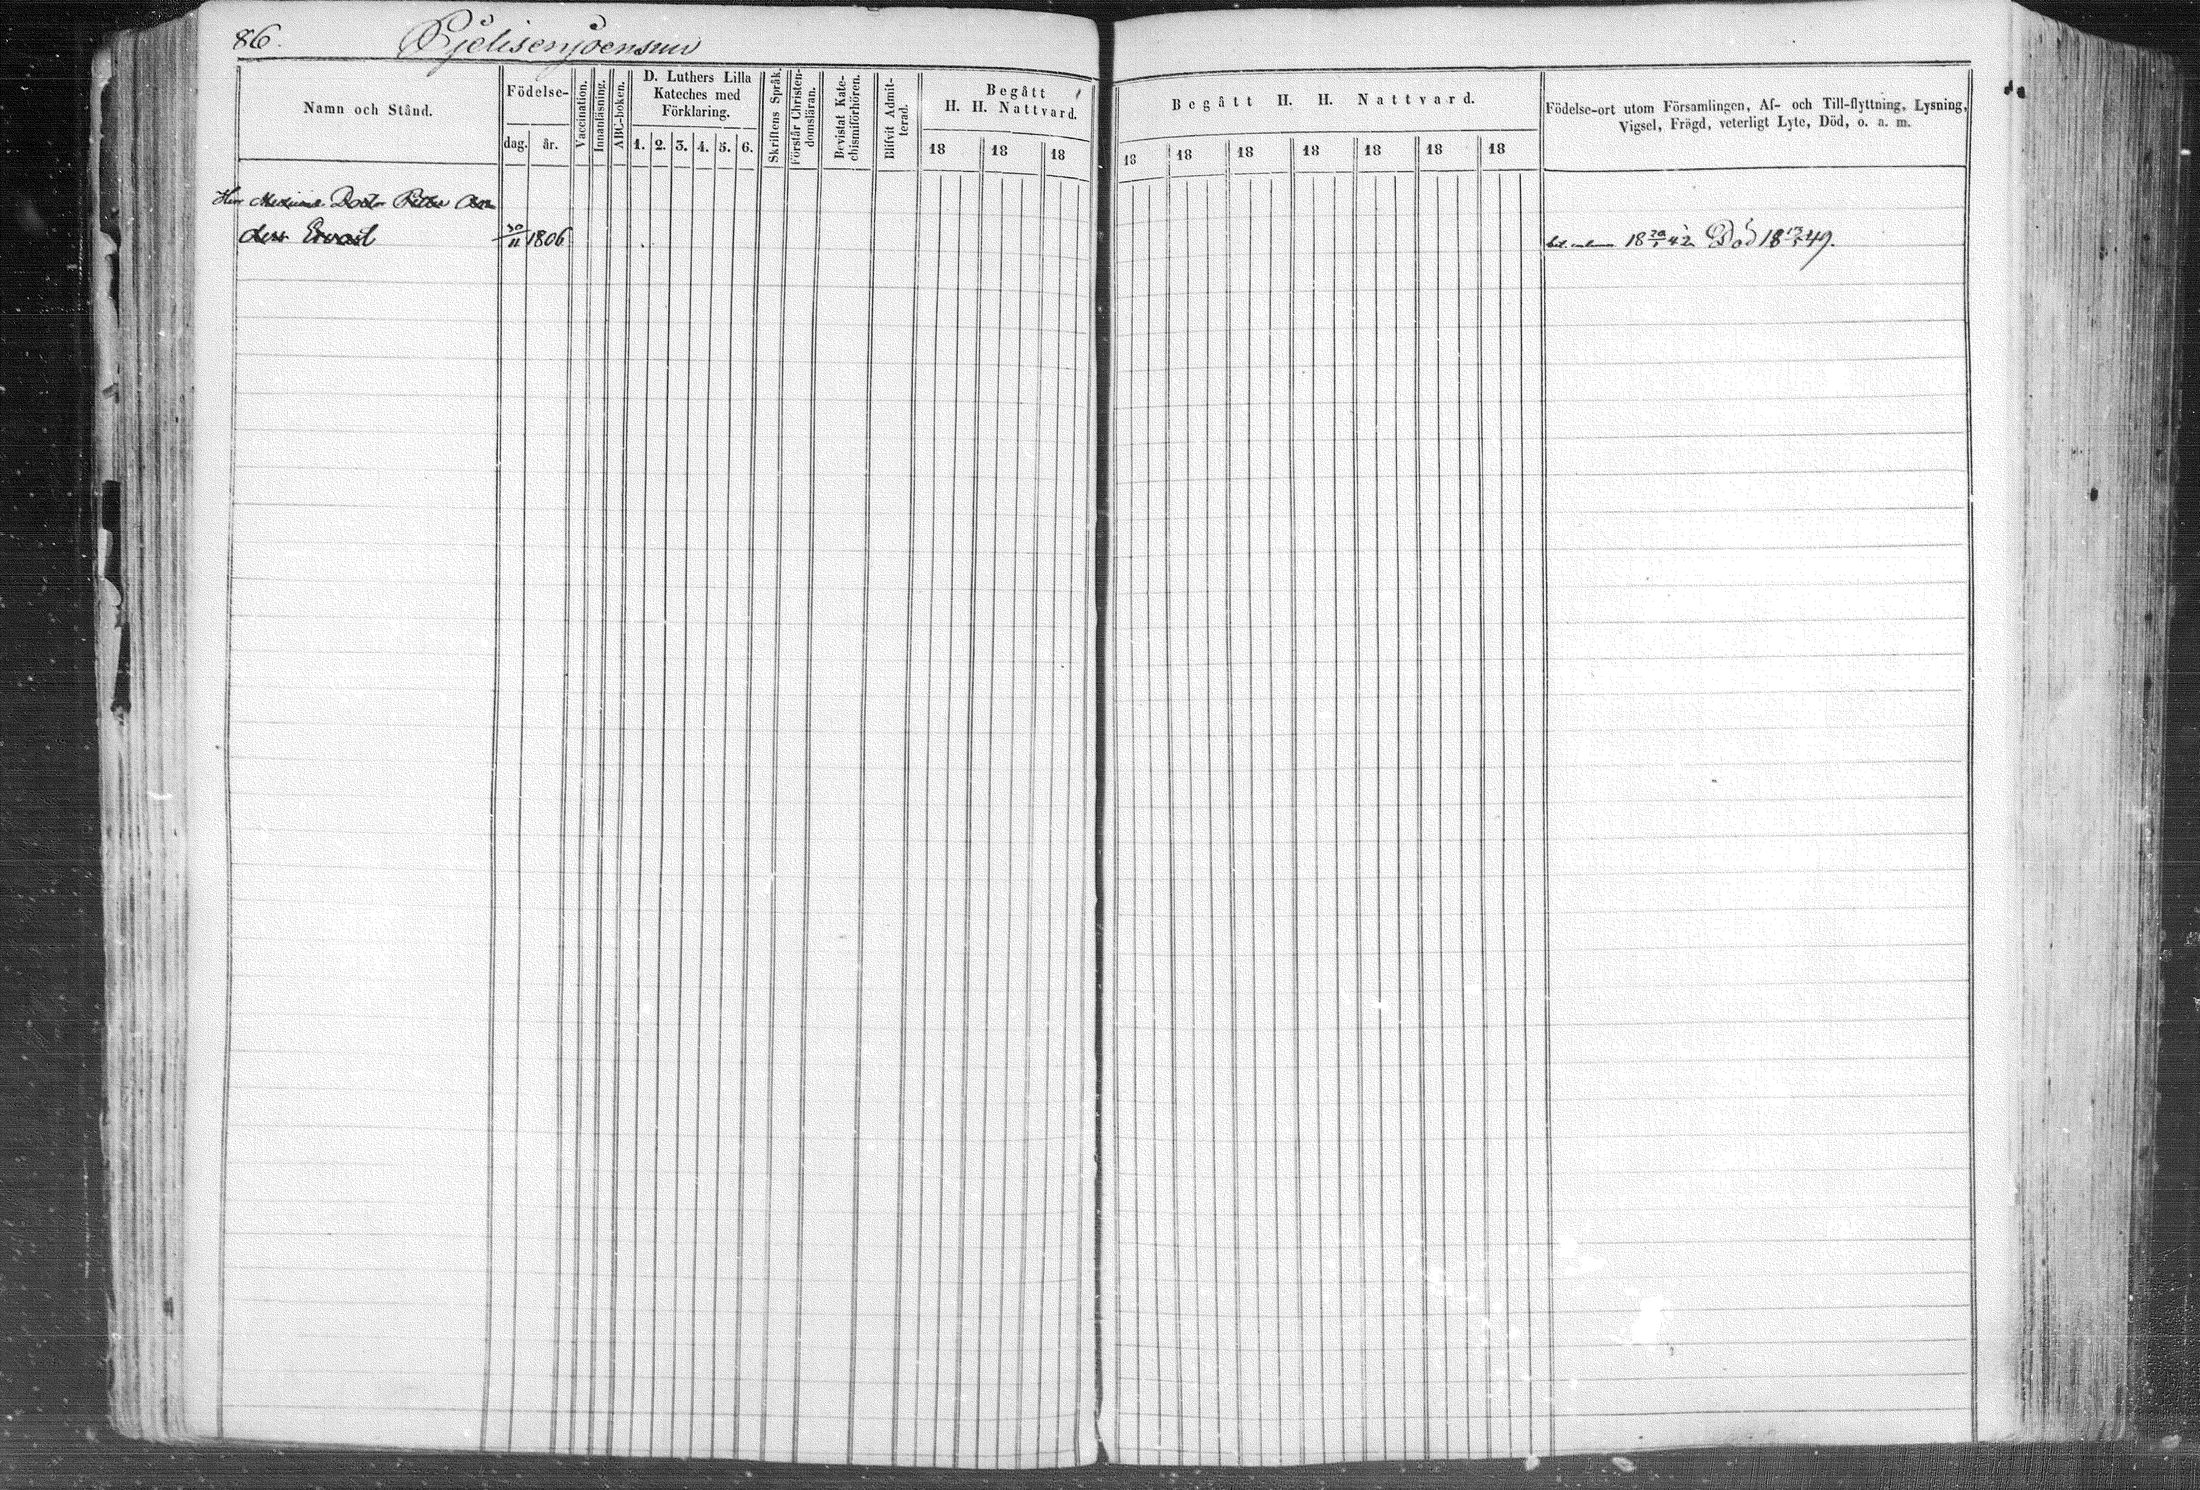 86. Pjelisenjoensuu
Namn och Stånd.
Födelse-
dag. år.
Vaccination.
Innanläsning.
ABC-boken.
D. Luthers Lilla
Kateches med
Förklaring.
1. 2. 3. 4. 5. 6.
Skriftens Språk.
Förstår Christen-
domsläran.
Bevistat Kate-
chismiförhören.
Blifvit Admit-
terad.
Begått
H. H. Nattvard.
18 18 18
Begått H. H. Nattvard.
18 18 18 18 18 18 18
Födelse-ort utom Församlingen, Af- och Till-flyttning, Lysning,
Vigsel, Frägd, veterligt Lyte, Död, o. a. m.
Herr Medicine Doctor Petter An
ders Ervast 30/11 1806 42 Död 49.